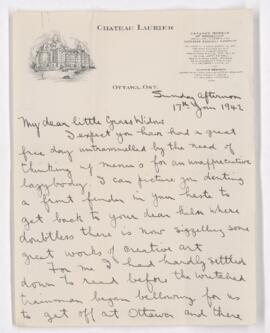 CHATEAU LAURIER
OTTAWA, ONT.
Sunday afternoon
17th Jan 1942
My dear little Grass Widow
I expect you have had a great
free day untrammelled by the need of
thinking up menus for an unappreciative
lazybody. I can picture you denting
a front fender in your haste to
get back to your dear kiln where
doubtless there is now sizzling some
great works of creative art
For me I had hardly settled
down to read before the wretched
trainman began bellowing for us
to get off at Ottawa and there